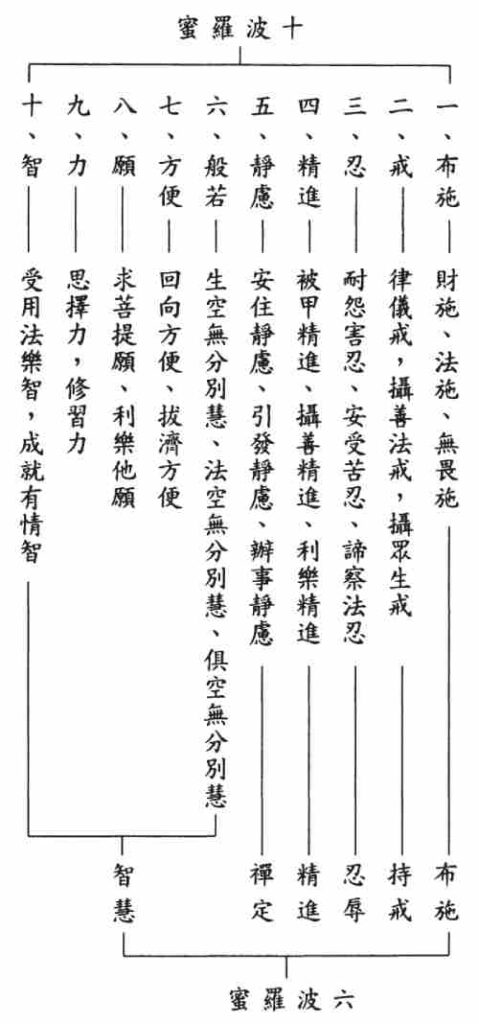 十波羅蜜
一、布施 財施、法施、無畏施 布施
二、戒 律儀戒,攝善法戒,攝眾生戒 持戒
三、忍 耐怨害忍、安受苦忍、諦察法忍 忍辱
四、精進 被甲精進、攝善精進、利樂精進 精進
五、靜慮 安住靜慮、引發靜慮、辦事靜慮 禪定
六、般若 生空無分別慧、法空無分別慧、俱空無分別慧
七、方便 回向方便、拔濟方便
八、願 求菩提願、利樂他願
九、力 思擇力,修習力
十、智 受用法樂智,成就有情智
智慧
六波羅蜜